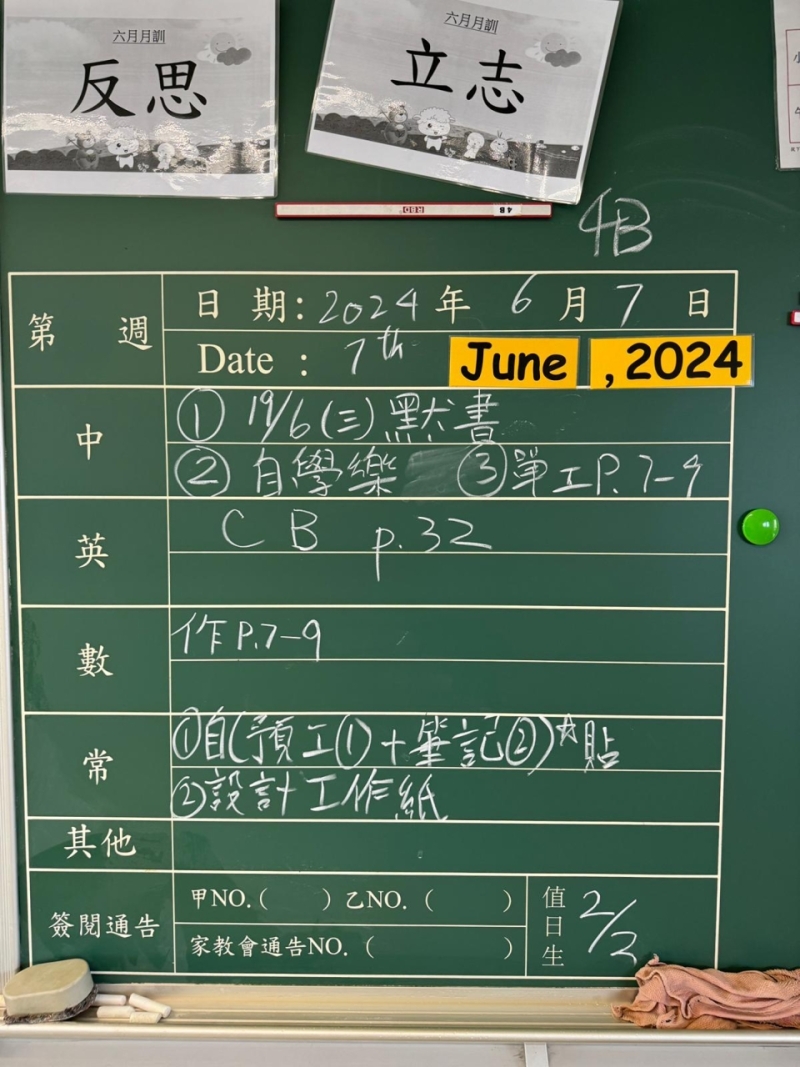 六月月訓
反思
六月月訓
立志
4B
4B
第 週
日 期: 2024 年 6 月 7 日
Date : 7th June ,2024
中
① 19/6 (三) 默書
② 自學樂 ③ 單工 P. 7-9
英
C B p.32
數
作 P.7-9
常
① 自(預工① + 筆記②)☆貼
② 設計工作紙
其他
簽閱通告
甲NO.( ) 乙NO. ( )
家教會通告NO. ( )
值日生
2/2